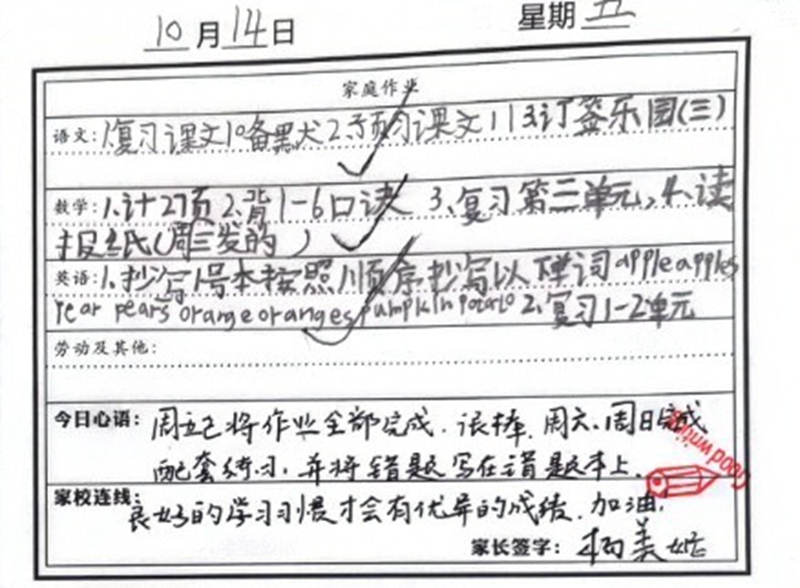 10月14日 星期五
家庭作业
语文:1复习课文10备默犬2.预习课文11 3.订签乐园(三)
数学:1.计27页 2.背1-6口诀 3、复习第三单元,4、读
报纸(周三发的)
英语:1.抄写1号本按照顺序抄写以下单词apple apples
pear pears orange oranges pumpkin potato 2.复习1-2单元
劳动及其他:
今日心语:周五已将作业全部完成.很棒.周六、周日完成
配套练习,并将错题写在错题本上.
Good writing
家校连线:良好的学习习惯才会有优异的成绩.加油,
家长签字:杨美